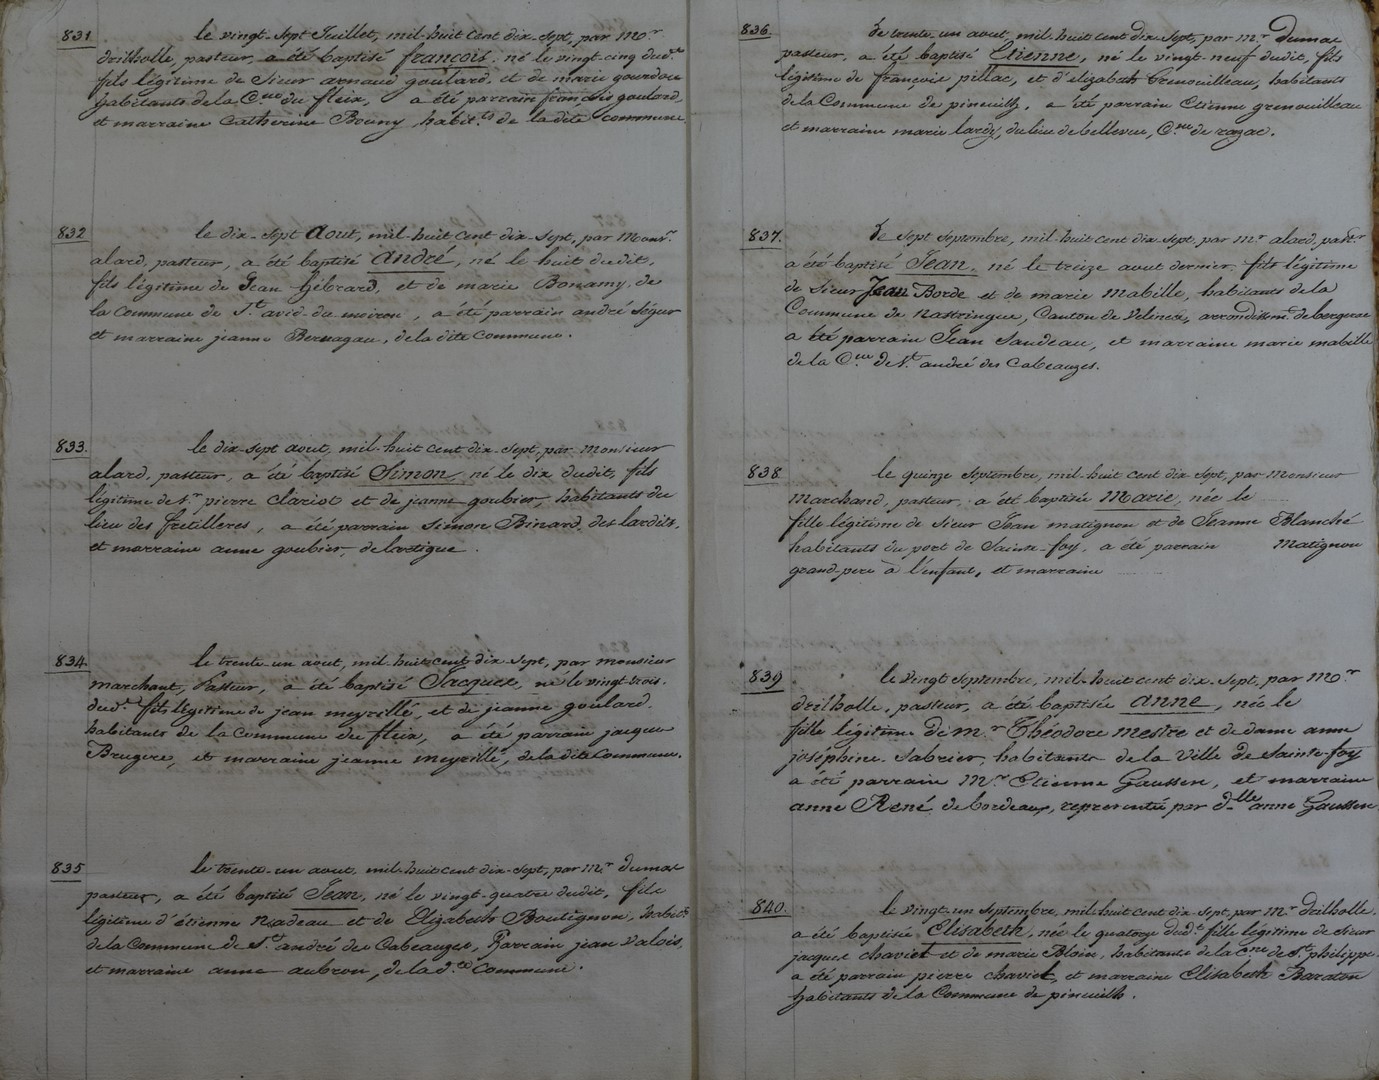 831
le vingt-sept Juillet, mil-huit cent dix-sept, par Mr.
drilholle, pasteur, a été baptisé françois, né le vingt-cinq dud.t
fils légitime de Sieur arnaud goulard, et de marie gourdou
habitants de la C.ne du fleix, a été parrain françois goulard,
et marraine Catherine Bouny, habit.ts de la dite commune
832
le dix-sept Aout, mil-huit cent dix-sept, par Monsr.
alard, pasteur, a été baptisé André, né le huit dudit,
fils légitime de Jean Gébrard, et de marie Bonamy, de
la commune de St. avid du moiron, a été parrain andré Ségur
et marraine jeanne Bernagau, de la dite Commune.
833.
le dix-sept aout, mil-huit cent dix-sept, par Monsieur
alard, pasteur, a été baptisé Simon, né le dix dudit, fils
légitime de Sr. pierre Clariot et de jeanne goubier, habitants du
lieu des fretilleres, a été parrain Simon Binard, des lardits,
et marraine anne goubier, de lartigue.
834.
le trente-un aout, mil-huit cent dix-sept, par monsieur
marchant, Pasteur, a été baptisé Jacques, né le vingt-trois.
dud.t fils légitime de jean meyrillé, et de jeanne goulard,
habitants de la Commune du fleix, a été parrain jacques
Brugere, et marraine jeanne meyrillé, de la dite Commune.
835
le trente-un aout, mil-huit cent dix-sept, par Mr. dumas
pasteur, a été baptisé Jean, né le vingt-quatre dudit, fils
légitime d'étienne Nadeau et de Elizabeth Boutignon, habit.ts
de la Commune de St. andré de Cabeauze, Parrain jean Valois,
et marraine anne aubron, de la d.te Commune.
836.
Le trente-un aout, mil-huit cent dix Sept, par mr. Dumas
pasteur, a été baptisé Etienne, né le vingt-neuf dudit, fils
légitime de françois pillac, et d'elizabeth Grenouilleau, habitants
de la Commune de pineuilh, a été parrain Etienne grenouilleau
et marraine marie lardy, du lieu de bellevue, C.ne de razac.
837.
Le Sept Septembre, mil-huit cent dix-sept, par mr. alard, past.r
a été baptisé Jean, né le treize aout dernier, fils légitime
de Sieur Jean Borde et de marie Mabille, habitants de la
Commune de nastringue, Canton de Velines, arrondissm.t de bergerac
a été parrain Jean Saudeau, et marraine marie mabille
de la C.ne de St. andré des Cabeauzes.
838
le quinze Septembre, mil-huit cent dix Sept, par Monsieur
Marchand, pasteur, a été baptisée Marie, née le
fille légitime de Sieur Jean matignon et de Jeanne Blanché
habitants du port de Sainte-foy, a été parrain Matignon
grand-pere à l'enfant, et marraine
839
le vingt Septembre, mil-huit cent dix-sept, par Mr.
drilholle, pasteur, a été baptisée anne, née le
fille légitime de mr. Théodore mestre et de dame anne
joséphine Sabrier, habitants de la Ville de Sainte-foy
a été parrain Mr. Etienne Gaussen, et marraine
anne René de bordeaux, représentée par d.lle anne Gaussen
840.
le vingt-un Septembre, mil-huit cent dix-sept, par Mr. drilholle,
a été baptisée Elisabeth, née le quatorze dud.t fille légitime de Sieur
jacques chaviet et de marie Bloin, habitants de la C.ne de St. philippe,
a été parrain pierre chaviet, et marraine Elisabeth Baraton
habitants de la Commune de pineuilh.